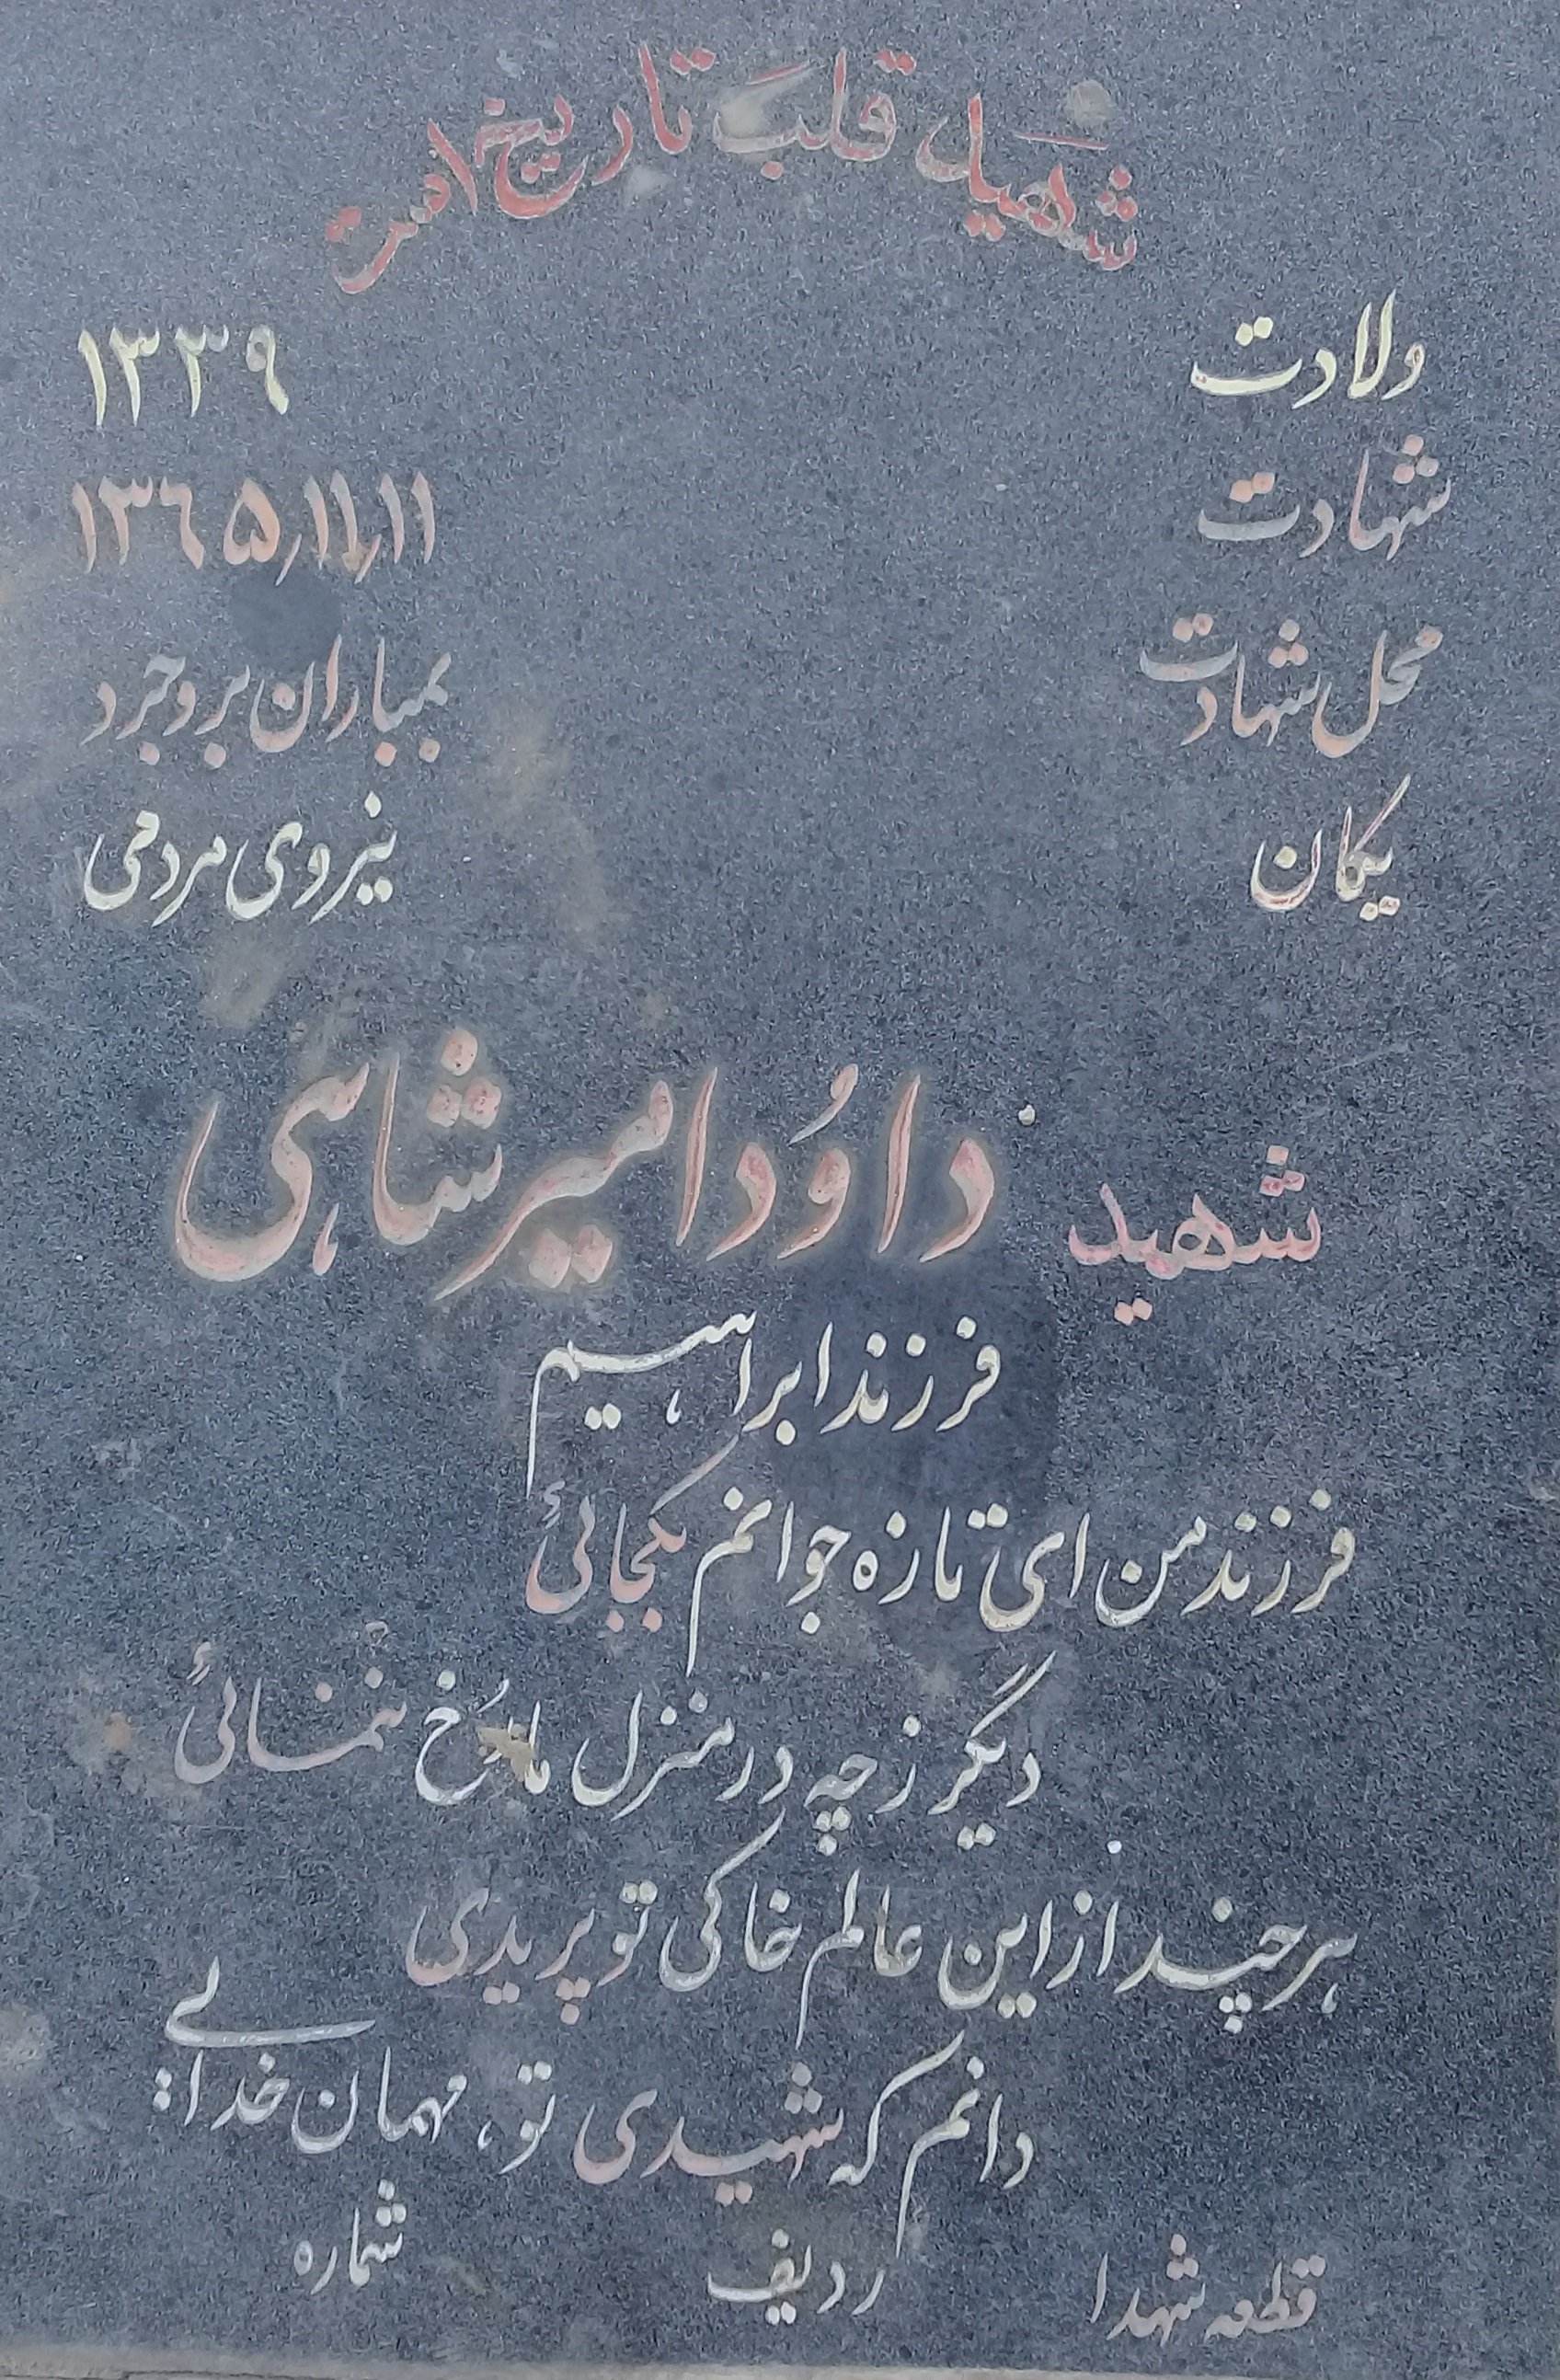 شهید قلب تاریخ است
ولادت ۱۳۳۹
شهادت ۱۳۶۵/۱۱/۱۱
محل شهادت بمباران بروجرد
یگان نیروی مردمی
شهید داوُد امیرشاهی
فرزند ابراهیم
فرزند من ای تازه جوانم بکجائی
دیگر ز چه در منزل ما رُخ ننمائی
هرچند از این عالم خاکی تو پریدی
دانم که شهیدی تو، مهمان خدایی
قطعه شهدا ردیف شماره